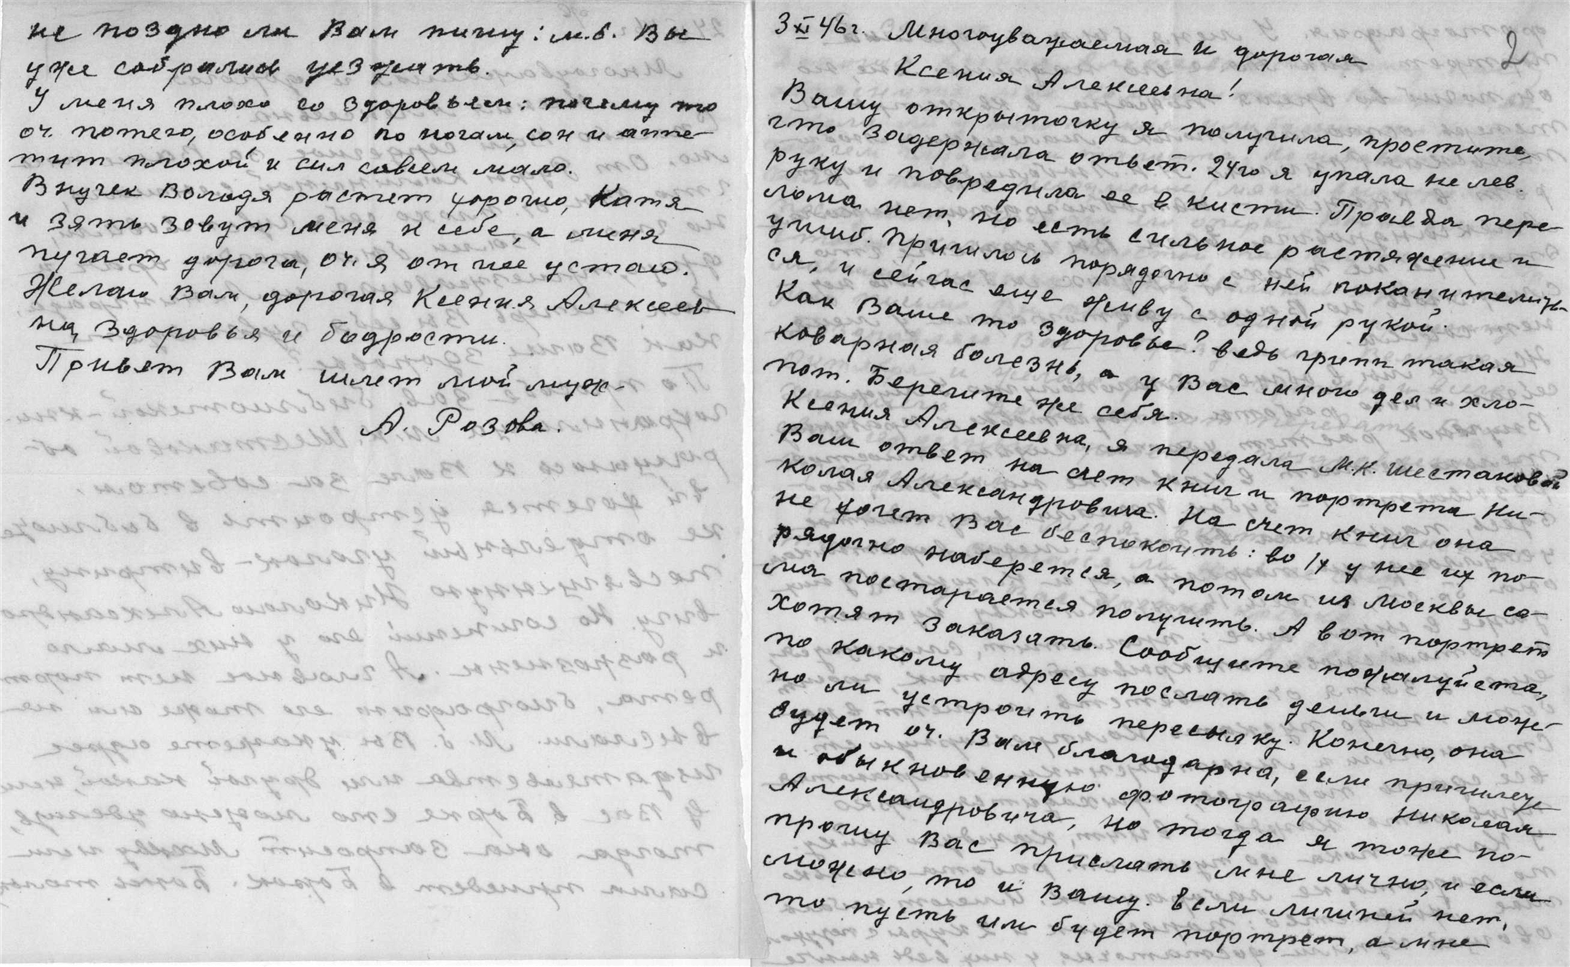 не поздно ли Вам пишу: м.б. Вы
уже собрались уезжать.
У меня плохо со здоровьем: почему то
оч. потею, особенно по ногам, сон и аппе-
тит плохой и сил совсем мало.
Внучек Володя растет хорошо, Катя
и зять зовут меня к себе, а меня
пугает дорога, оч. я от нее устаю.
Желаю Вам, дорогая Ксения Алексеев
на, здоровья и бодрости.
Привет Вам шлет мой муж.
А. Розова.
2
3 XI 46 г. Многоуважаемая и дорогая
Ксения Алексеевна!
Вашу открыточку я получила, простите,
что задержала ответ. 24го я упала на лев.
руку и повредила ее в кисти. Правда пере-
лома нет, но есть сильное растяжение и
ушиб. Пришлось порядочно с ней поканителить-
ся, и сейчас еще живу с одной рукой.
Как Ваше то здоровье? ведь грипп такая
коварная болезнь, а у Вас много дел и хло-
пот. Берегите же себя.
Ксения Алексеевна, я передала М.К. Шестаковой
Ваш ответ на счет книг и портрета Ни-
колая Александровича. На счет книг она
не хочет Вас беспокоить: во 1х у нее их по-
рядочно наберется, а потом из Москвы са-
ма постарается получить. А вот портрет
хотят заказать. Сообщите пожалуйста,
по какому адресу послать деньги и мож-
но ли устроить пересылку. Конечно, она
будет оч. Вам благодарна, если пришлете
и обыкновенную фотографию Николая
Александровича, но тогда я тоже по-
прошу Вас прислать мне лично, и если
можно, то и Вашу. Если лишней нет,
то пусть им будет портрет, а мне